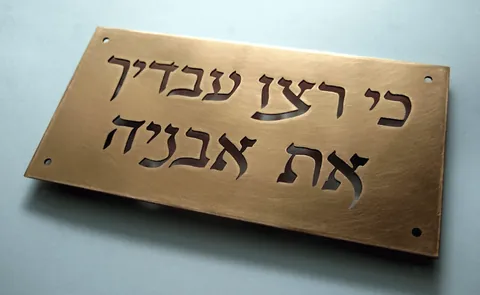 כי רצו עבדיך
את אבניה